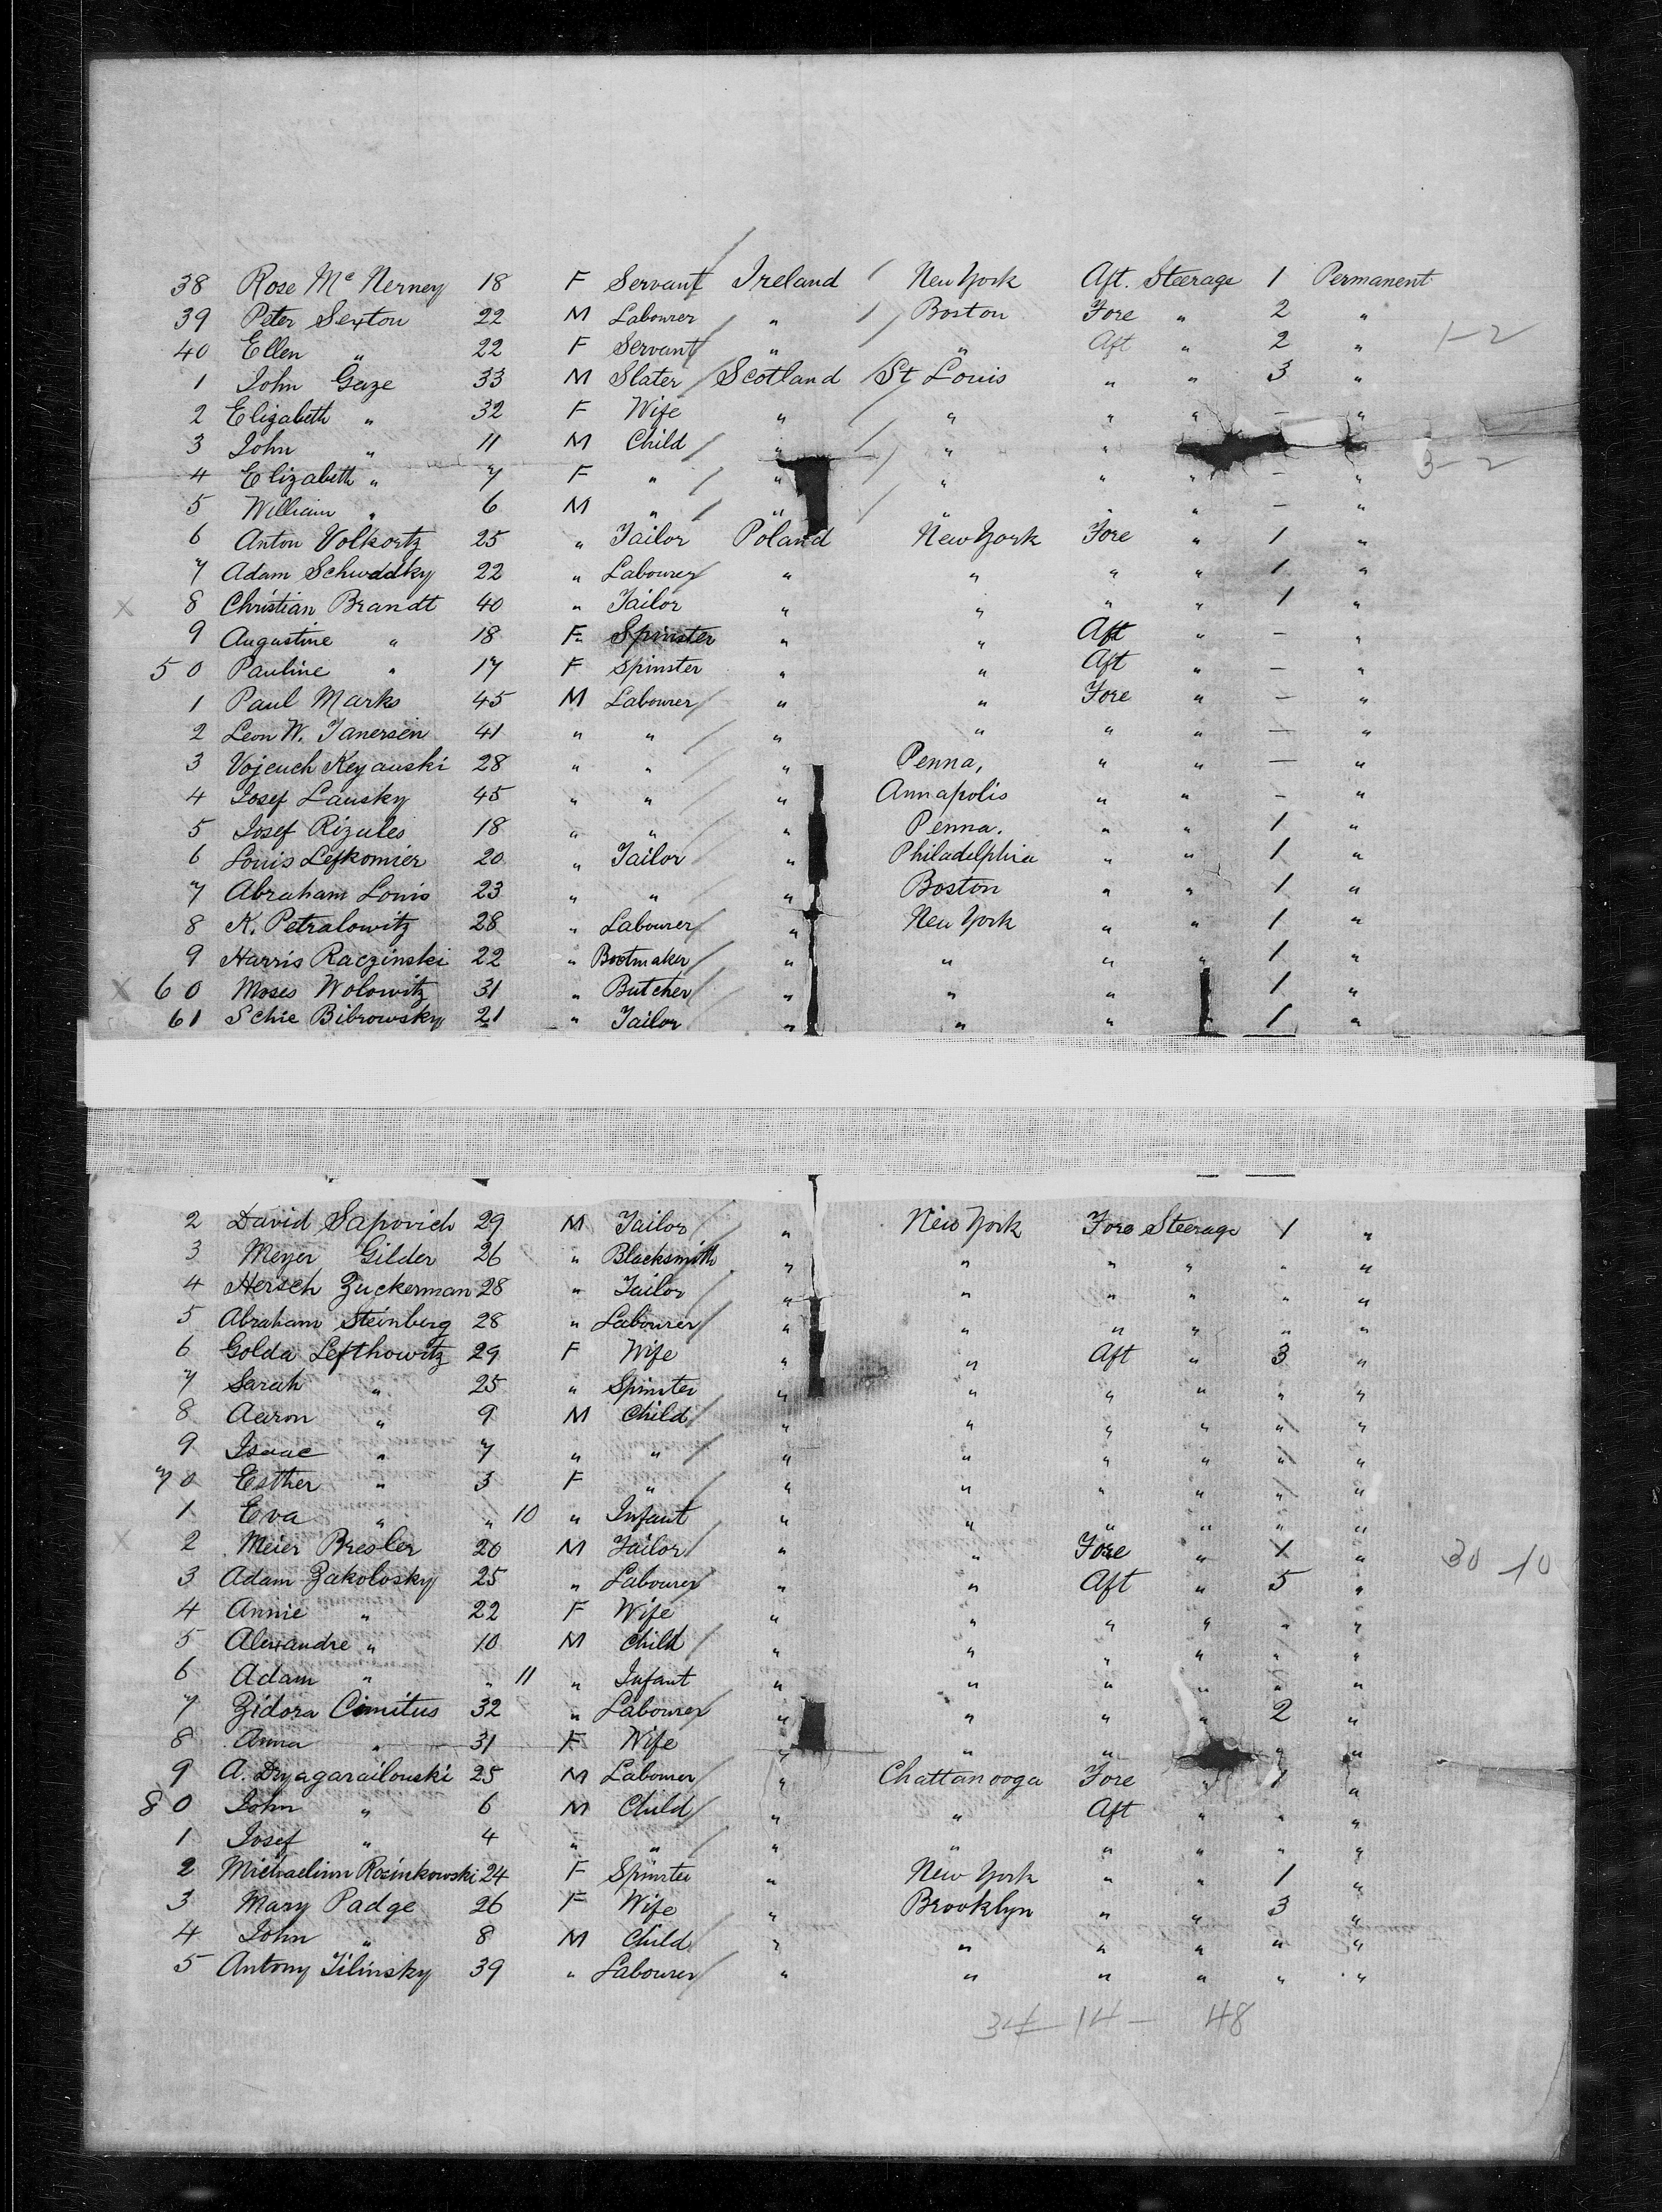 38 Rose Mc Nerney 18 F Servant Ireland New York Aft. Steerage 1 Permanent
39 Peter Sexton 22 M Labourer " Boston Fore " 2 "
40 Ellen " 22 F Servant " " Aft " 2 " 1-2
1 John Gaze 33 M Slater Scotland St Louis " " 3 "
2 Elizabeth " 32 F Wife " " " " - "
3 John " 11 M Child " " "
4 Elizabeth " 7 F " " " " " - " 3-2
5 William " 6 M " " " " " - "
6 Anton Volkortz 25 " Tailor Poland New York Fore " 1 "
7 Adam Schwddky 22 " Labourer " " " " 1 "
X 8 Christian Brandt 40 " Tailor " " " " 1 "
9 Augustine " 18 F Spinster " " Aft " - "
50 Pauline " 17 F Spinster " " Aft " - "
1 Paul Marks 45 M Labourer " " Fore " - "
2 Leon W. Janersen 41 " " " " " " - "
3 Vojcuch Keyauski 28 " " " Penna, " " - "
4 Josef Lausky 45 " " " Annapolis " " - "
5 Josef Rizules 18 " " " Penna. " " 1 "
6 Louis Lefkomier 20 " Tailor " Philadelphia " " 1 "
7 Abraham Louis 23 " " " Boston " " 1 "
8 K. Petralowitz 28 " Labourer " New York " " 1 "
9 Harris Raczinski 22 " Bootmaker " " " " 1 "
X 60 Moses Wolowitz 31 " Butcher " " " 1 "
61 Schie Bibrowsky 21 " Tailor " " " 1 "
2 David Sapovich 29 M Tailor " New York Fore Steerage 1 "
3 Meyer Gilder 26 " Blacksmith " " " " " "
4 Hersch Zuckerman 28 " Tailor " " " " " "
5 Abraham Steinberg 28 " Labourer " " " " " "
6 Golda Lefthowitz 29 F Wife " " Aft " 3 "
7 Sarah " 25 " Spinster " " " " " "
8 Aaron " 9 M Child " " " " " "
9 Isaac " 7 " " " " " " " "
70 Esther " 3 F " " " " " " "
1 Eva " " 10 " Infant " " " " " "
X 2 Meier Bresler 20 M Tailor " " Fore " X " 30-10
3 Adam Zakolosky 25 " Labourer " " Aft " 5 "
4 Annie " 22 F Wife " " " " " "
5 Alexandre " 10 M Child " " " " " "
6 Adam " " 11 " Infant " " " " " "
7 Zidora Cimitus 32 " Labourer " " " " 2 "
8 Anna " 31 F Wife " " " " "
9 A. Dryagarailouski 25 M Labourer " Chattanooga Fore " 1 "
80 John " 6 M Child " " Aft " " "
1 Josef " 4 " " " " " " " "
2 Michaelinn Rozinkowski 24 F Spinster " New York " " 1 "
3 Mary Padge 26 F Wife " Brooklyn " " 3 "
4 John " 8 M Child " " " " " "
5 Antony Tilinsky 39 " Labourer " " " " " "
34-14- 48